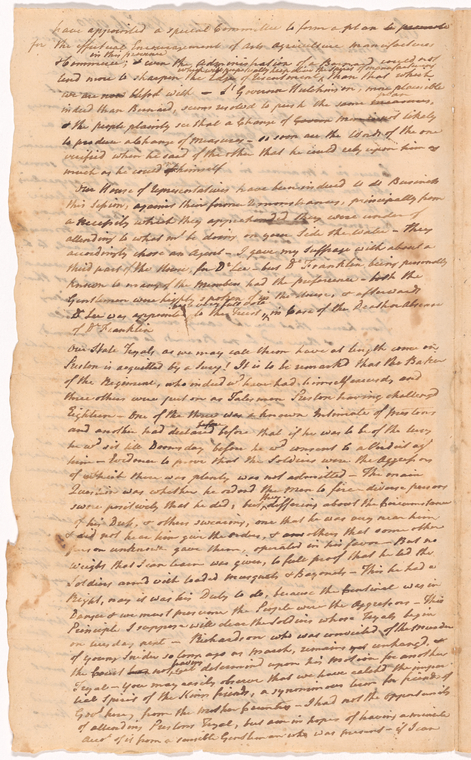 have appointed a special Committee to form a plan
for the effectual Encouragement of Arts Agriculture manufactures
in this province
& Commerce; & even the Administration of a Bernard could not
tend more to sharpen the Edge of resentment, than that which
we are now blessd with — Lt Governor Hutchinson, more plausible
indeed than Bernard, seems resolvd to push the same measures,
& the people plainly see that a Change of Men is not likely
to produce a Change of measures — so soon are the Words of the one
verified when he said of the other that he could rely upon him as
much as he could of himself
Our House of Representatives have been inducd to do Business
this Session, against their former Remonstrances, principally from
a necessity which they apprehended they were under of
attending to what may be doing on your Side the Water — They
accordingly chose an Agent — I gave my Suffrage with about a
third part of the House, for Dr Lee — but Dr Franklin being personally
known to many of the Members had the preference — both the
Gentlemen were highly spoken of in the House, & afterwards
by a very full vote
Dr Lee was appointed to the Trust, in Case of the Death or Absence
of Dr Franklin
Our State Tryals, as we may call them have at length come on;
Preston is acquitted by a Jury! It is to be remarked that the Baker
of the Regiment, who indeed wd have had himself excusd, and
three others were put on as Talesmen Preston having challengd
Eighteen — One of the three was a known Intimate of Prestons
and another had declared before that if he was to be of the Jury
he wd sit till Doomsday before he wd consent to a Verdict agt
him — Evidence to prove that the Soldiers were the Aggressors
of which there was plenty was not admitted — The main
Question was whether he orderd the Men to fire — diverse persons
swore positively that he did; but they differing about the Circumstance
of his Dress, & others swearing, one that he was very near him
& did not hear him give the orders, & others that some other
person unknown gave them, operated in his favor — But no
weight that I can learn was given, to full proof that he led the
Soldiers armd with loaded musquets & Bayonets — This he had a
Right, nay it was his Duty to do, because the Centinel was in
Danger & we must presume the People were the Aggressors — This
Principle I suppose will clear the Soldiers whose Tryals begin
on tuesday next — Richardson who was convicted of the Murder
of young Snider so long ago as March, remains yet unchangd, &
the Court have not yet determind upon his Motion for another
Tryal — You may easily observe that we have catchd the impar-
tial Spirit of the Kings friends, a synonimous term for friends of
Govt here, from the mother Country — I had not the opportunity
of attending Prestons Tryal, but am in hopes of having a minute
Acct of it from a sensible Gentleman who was present — if I can